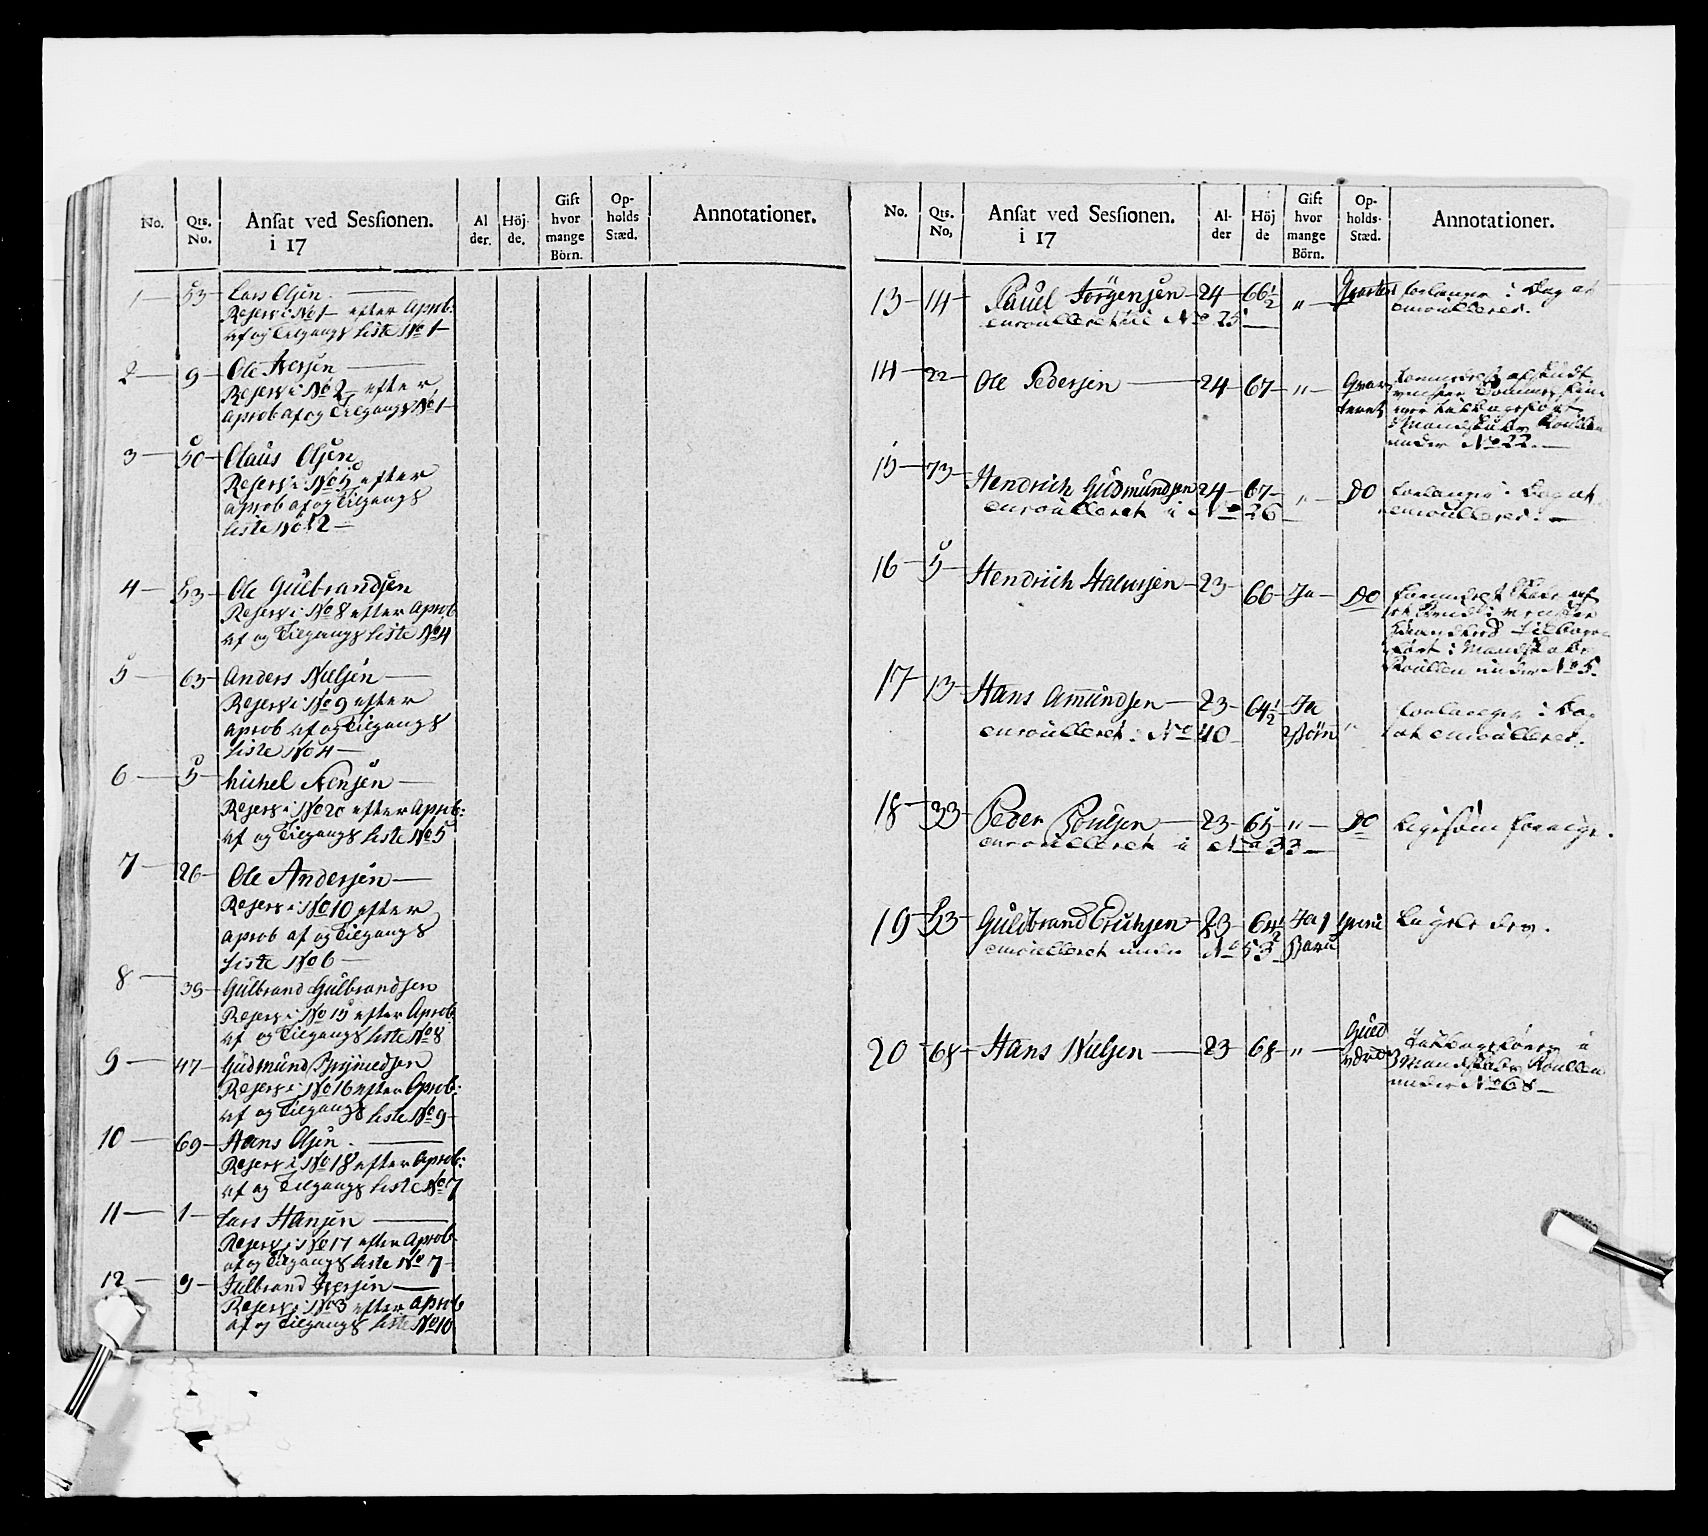 No. Qts. No. Ansat ved Sessionen. i 17 Al der. Höj- de. Gift hvor mange Börn. Op- holds Stæd. Annotationer.
1 53 Lars Olsen
Reserv i No 1 efter Aprob:
af og Tilgangs Liste No 1
2 9 Ole Iversen
Reserv i No 2 efter
Aprob af og Tilgangs No 1
3 50 Claus Olsen
Reserv i No 5 efter
aprob af og Tilgangs
Liste No 2
4 53 Ole Gulbrandsen
Reserv i No 8 efter Aprob
af og Tilgangs Liste No 4
5 63 Anders Nielsen
Reserv i No 9 efter
aprob af og Tilgangs
Liste No 4
6 5 Michel Jensen
Reserv i No 20 efter Aprob:
af og Tilgangs Liste No 5
7 26 Ole Andersen
Reserv i No 10 efter
aprob af og Tilgangs
Liste No 6
8 39 Gulbrand Gulbrandsen
Reserv i No 15 efter Aprob
af og Tilgangs Liste No 8
9 47 Gudmund
Reserv i No 16 efter Aprob:
af og Tilgangs Liste No 9
10 69 Hans Olsen
Reserv i No 18 efter Aprob:
af og Tilgangs Liste No 7
11 1 Lars Hansen
Reserv i No 17 efter Aprob
af og Tilgangs Liste No 7
12 9 Gulbrand Iversen
Reserv i No 3 efter aprob
af og Tilgangs Liste No 10
No. Qts. No, Ansat ved Sessionen. i 17 Al- der Höj de Gift hvor mange Börn. Op- holds- Stæd. Annotationer.
13 14 Paul Jörgensen 24 66½ " forlanger i Dag at
enroulleret til No 25 enroulleres.
14 22 Ole Pedersen 24 67 "
Mandskabs Roullen
under No 22.
15 73 Hendrich Gudmundsen 24 67 " Do forlanger i Dag at
enroulleret i No 26 enroulleres.
16 5 Hendrich Halvorsen 23 66 Ja Do
i Mandskabs
Roullen under No 5.
17 13 Hans Amundsen 23 64½ Ja " forlanger i Dag
enroulleret i No 40 Börn at enroulleres.
18 33 Peder Poulsen 23 65 " Do Ligesom forrige.
enroulleret i No 33
19 53 Guldbrand Erichsen 23 64½ Ja 1 Ligeledes.
enroulleret under No 53 Barn
20 68 Hans Nielsen 23 68 "
Mandskabs Roullen
under No 68